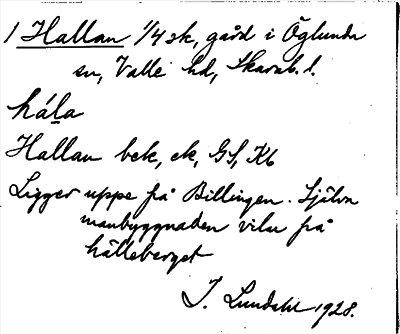 1 Hallan 1/4 sk, gård i Öglunda
sn, Valle hd, Skarab. l.
hála
Hallan bek, ek, GS, Kb
Ligger uppe på Billingen. Själva
manbyggnaden vilar på
hälleberget
I. Lundahl 1928.